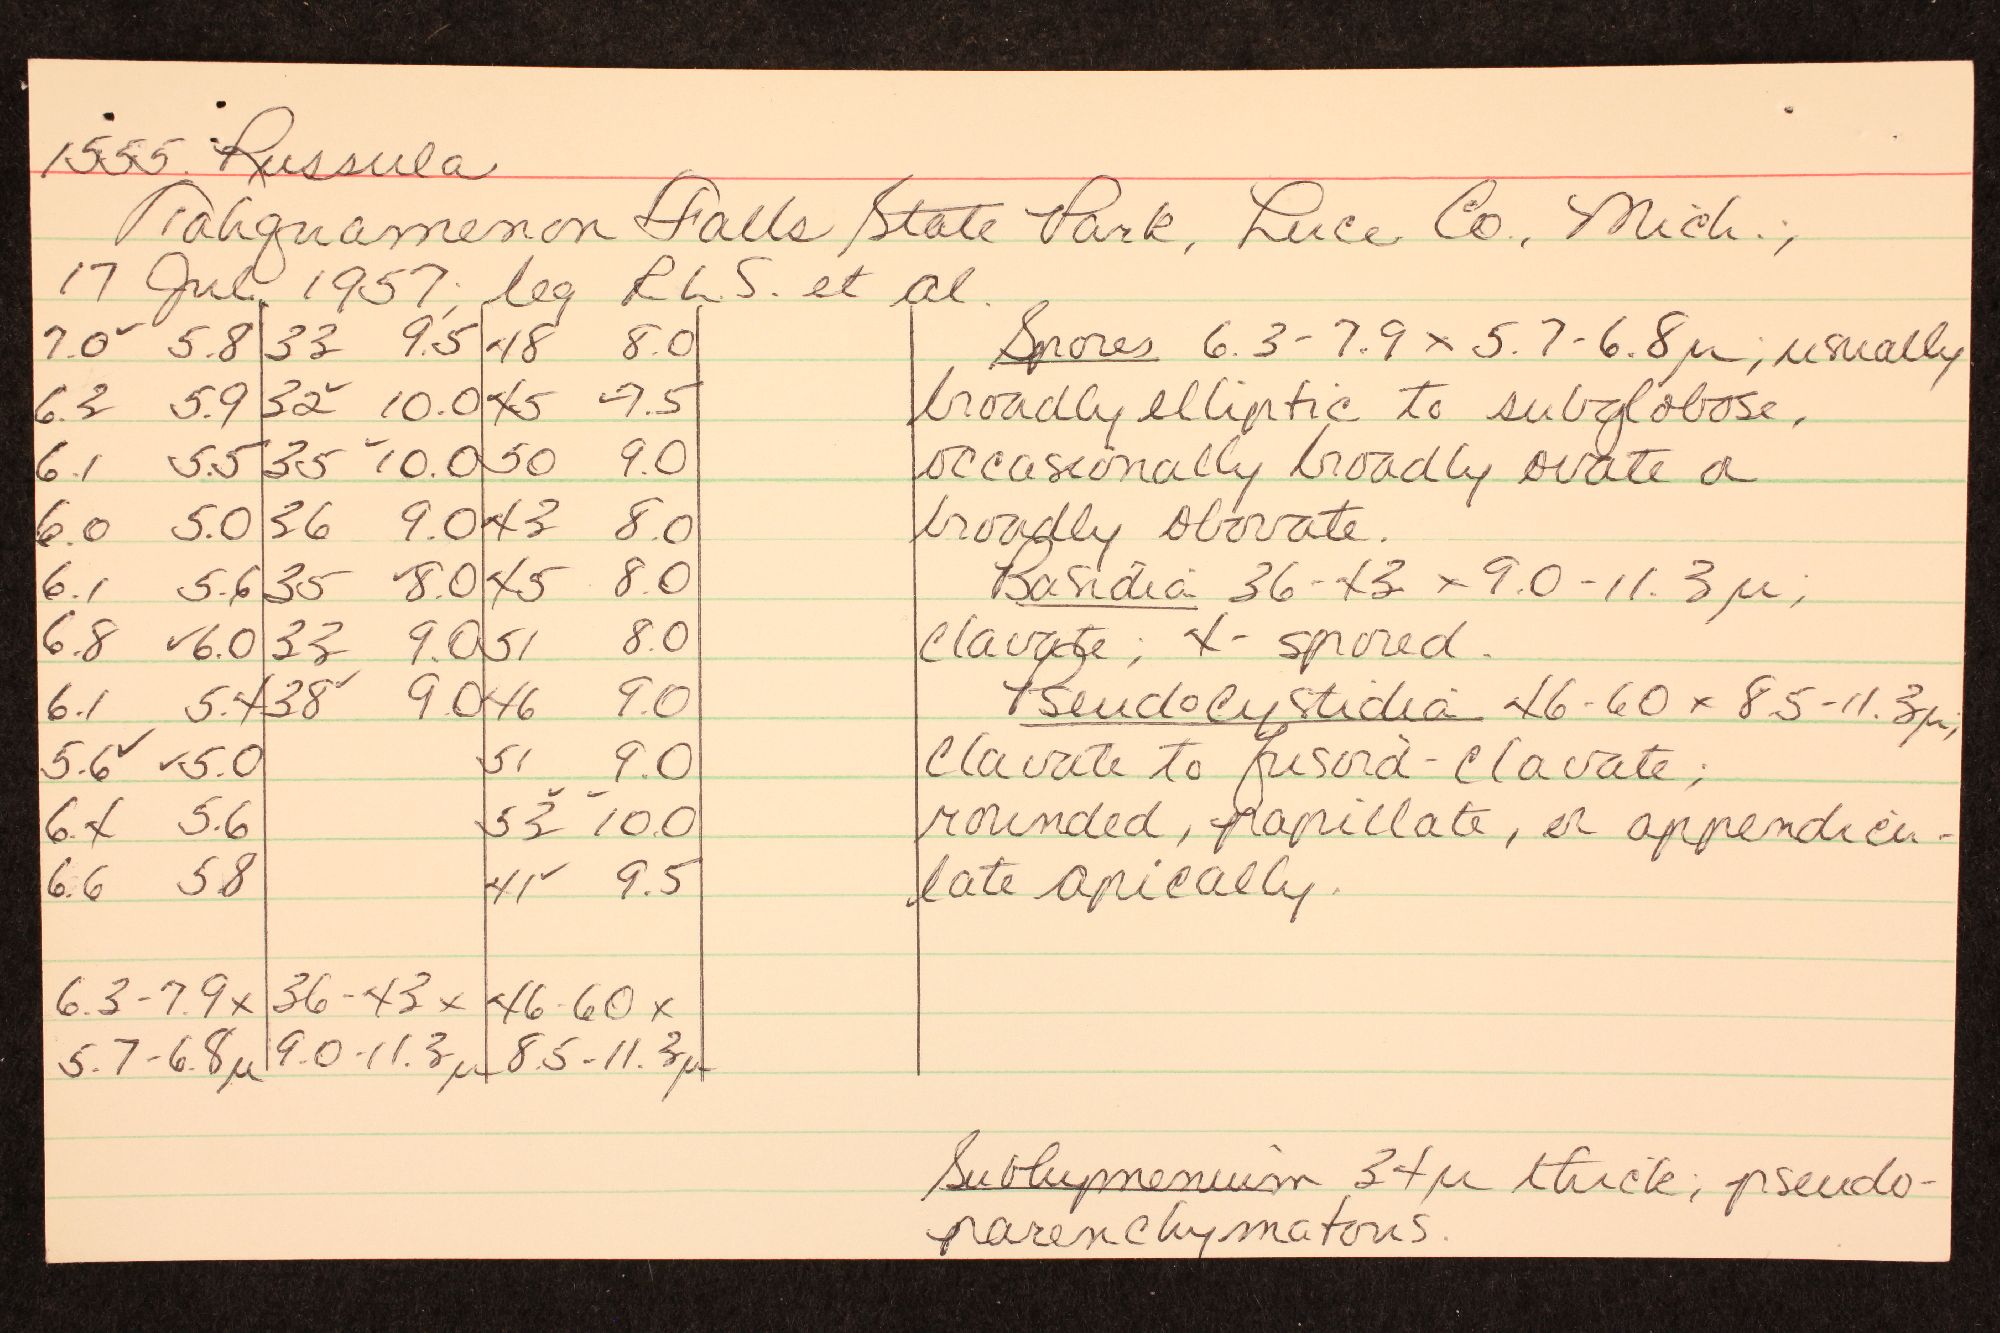 1555. Russula
Tahquamenon Falls State Park, Luce Co., Mich.;
17 Jul. 1957; leg R.L.S. et al.
7.0✓ 5.8 33 9.5 48 8.0
6.3 5.9 32✓ 10.0 45 ✓7.5
6.1 5.5 35 ✓10.0 50 9.0
6.0 5.0 36 9.0 43 8.0
6.1 5.6 35 ✓8.0 45 8.0
6.8 ✓6.0 33 9.0 51 8.0
6.1 5.4 38✓ 9.0 46 9.0
5.6✓ ✓5.0 51 9.0
6.4 5.6 53✓ ✓10.0
6.6 5.8 41✓ 9.5
6.3-7.9 x 36-43 x 46-60 x
5.7-6.8µ 9.0-11.3µ 8.5-11.3µ
Spores 6.3-7.9 x 5.7-6.8µ; usually
broadly elliptic to subglobose,
occasionally broadly ovate or
broadly obovate.
Basidia 36-43 x 9.0-11.3µ;
clavate; 4-spored.
Pseudocystidia 46-60 x 8.5-11.3µ;
clavate to fusoid-clavate;
rounded, papillate, or appendicu-
late apically.
Subhymenium 34µ thick; pseudo-
parenchymatous.